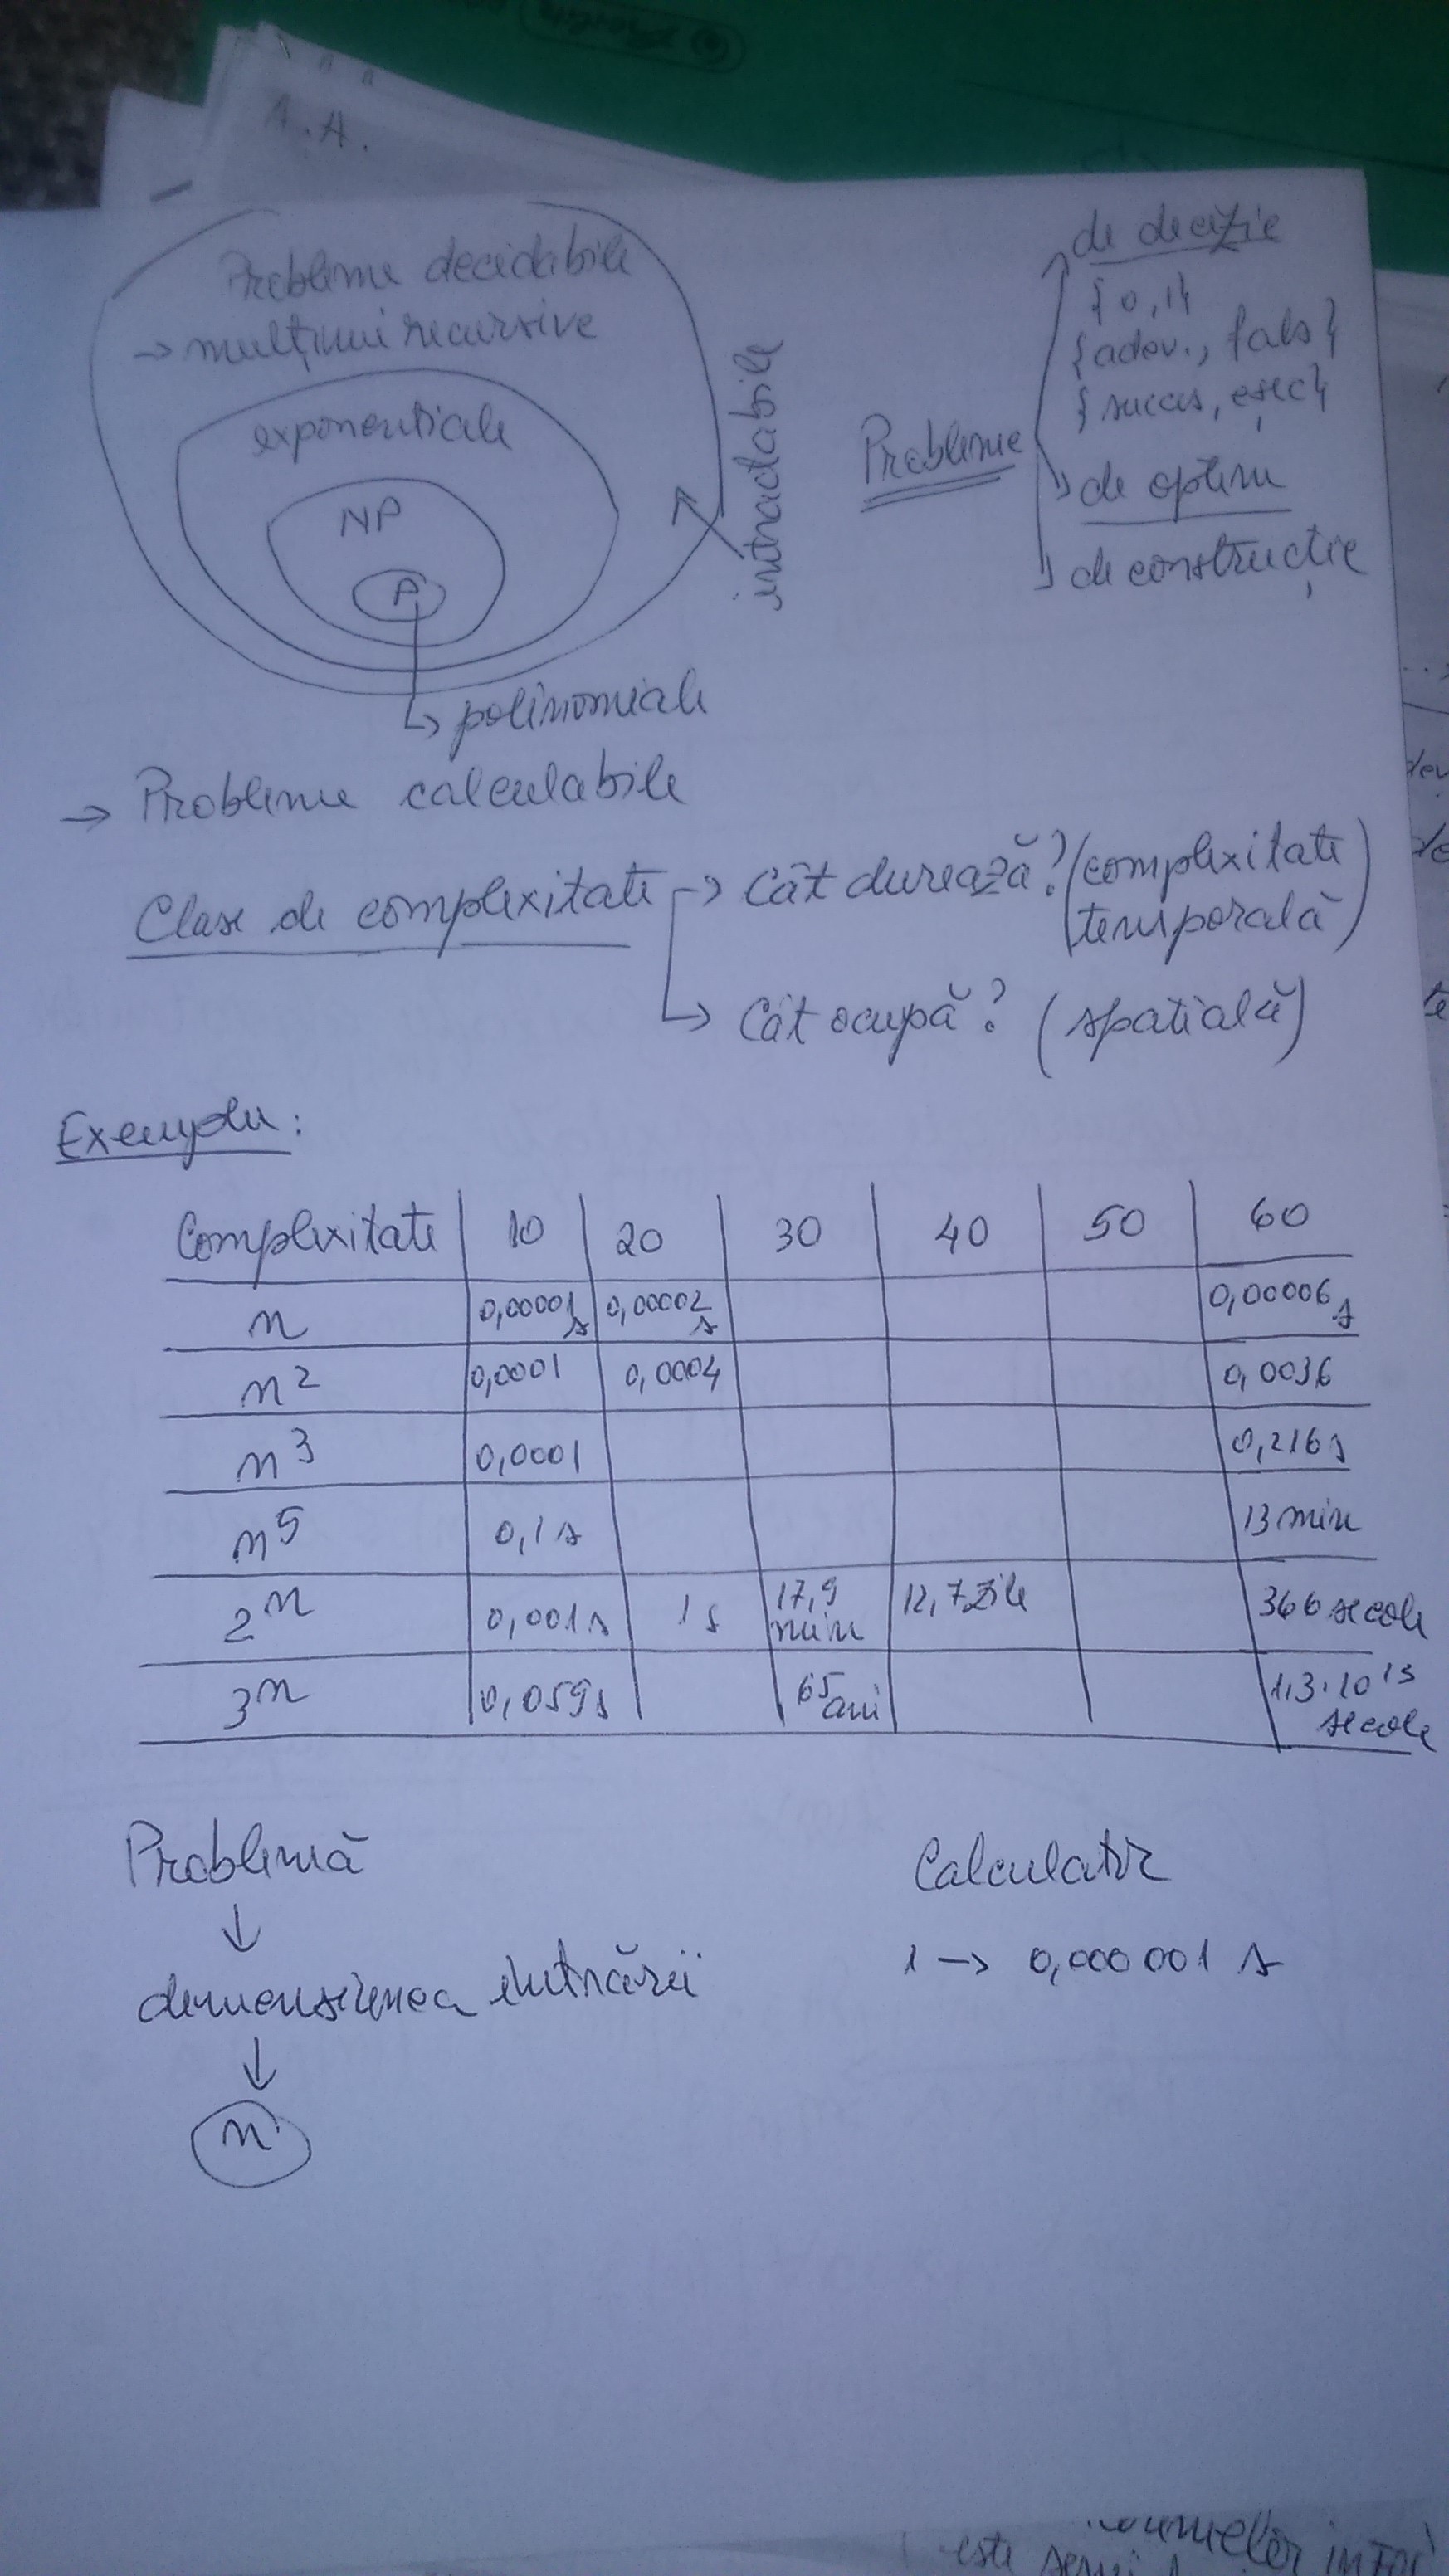 A.A.
Probleme decidabile
→ mulțimi recursive
exponentiale
NP
P
↳ polinomiale
intractabile
Probleme
de decizie
{0,1}
{adev., fals}
{succes, eșec}
de optim
de construcție
→ Probleme calculabile
Clase de complexitate → Cât durează? (complexitate
temporală)
↳ Cât ocupă? (spatială)
Exemplu:
Complexitate 10 20 30 40 50 60
n 0,00001s 0,00002s 0,00006s
n² 0,0001 0,0004 0,0036
n³ 0,0001 0,216s
n⁵ 0,1s 13 min
2ⁿ 0,001s 1s 17,9 min 12,7 zile 366 secole
3ⁿ 0,059s 65 ani 1,3·10¹³ secole
Problemă
↓
dimensiunea intrării
↓
n
Calculator
1 → 0,000 001 s
este